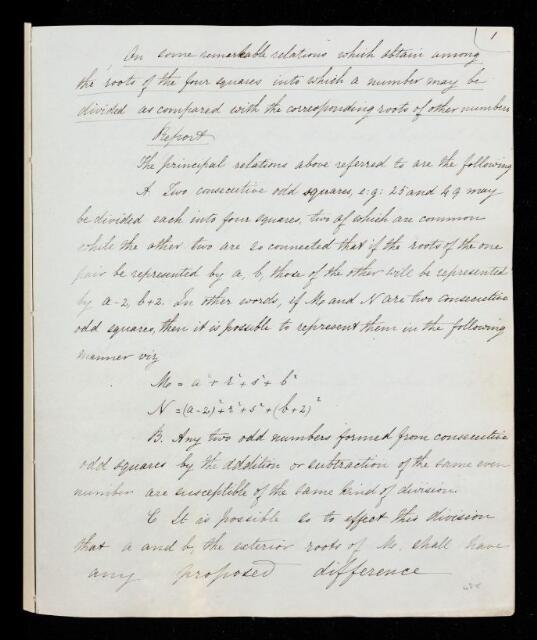 1
On some remarkable relations which obtain among
the roots of the four squares into which a number may be
divided as compared with the corresponding roots of other numbers
Report
The principal relations above referred to are the following
A. Two consecutive odd squares, e:g: 25 and 49 may
be divided each into four squares, two of which are common
while the other two are so connected that if the roots of the one
pair be represented by a, b, those of the other will be represented
by a-2, b+2. In other words, if M and N are two consecutive
odd squares, then it is possible to represent them in the following
manner viz
M = a² + r² + s² + b²
N = (a-2)² + r² + s² + (b+2)²
B. Any two odd numbers formed from consecutive
odd squares by the addition or subtraction of the same even
number are susceptible of the same kind of division.
C It is possible so to effect this division
that a and b, the exterior roots of M, shall have
any proposed difference